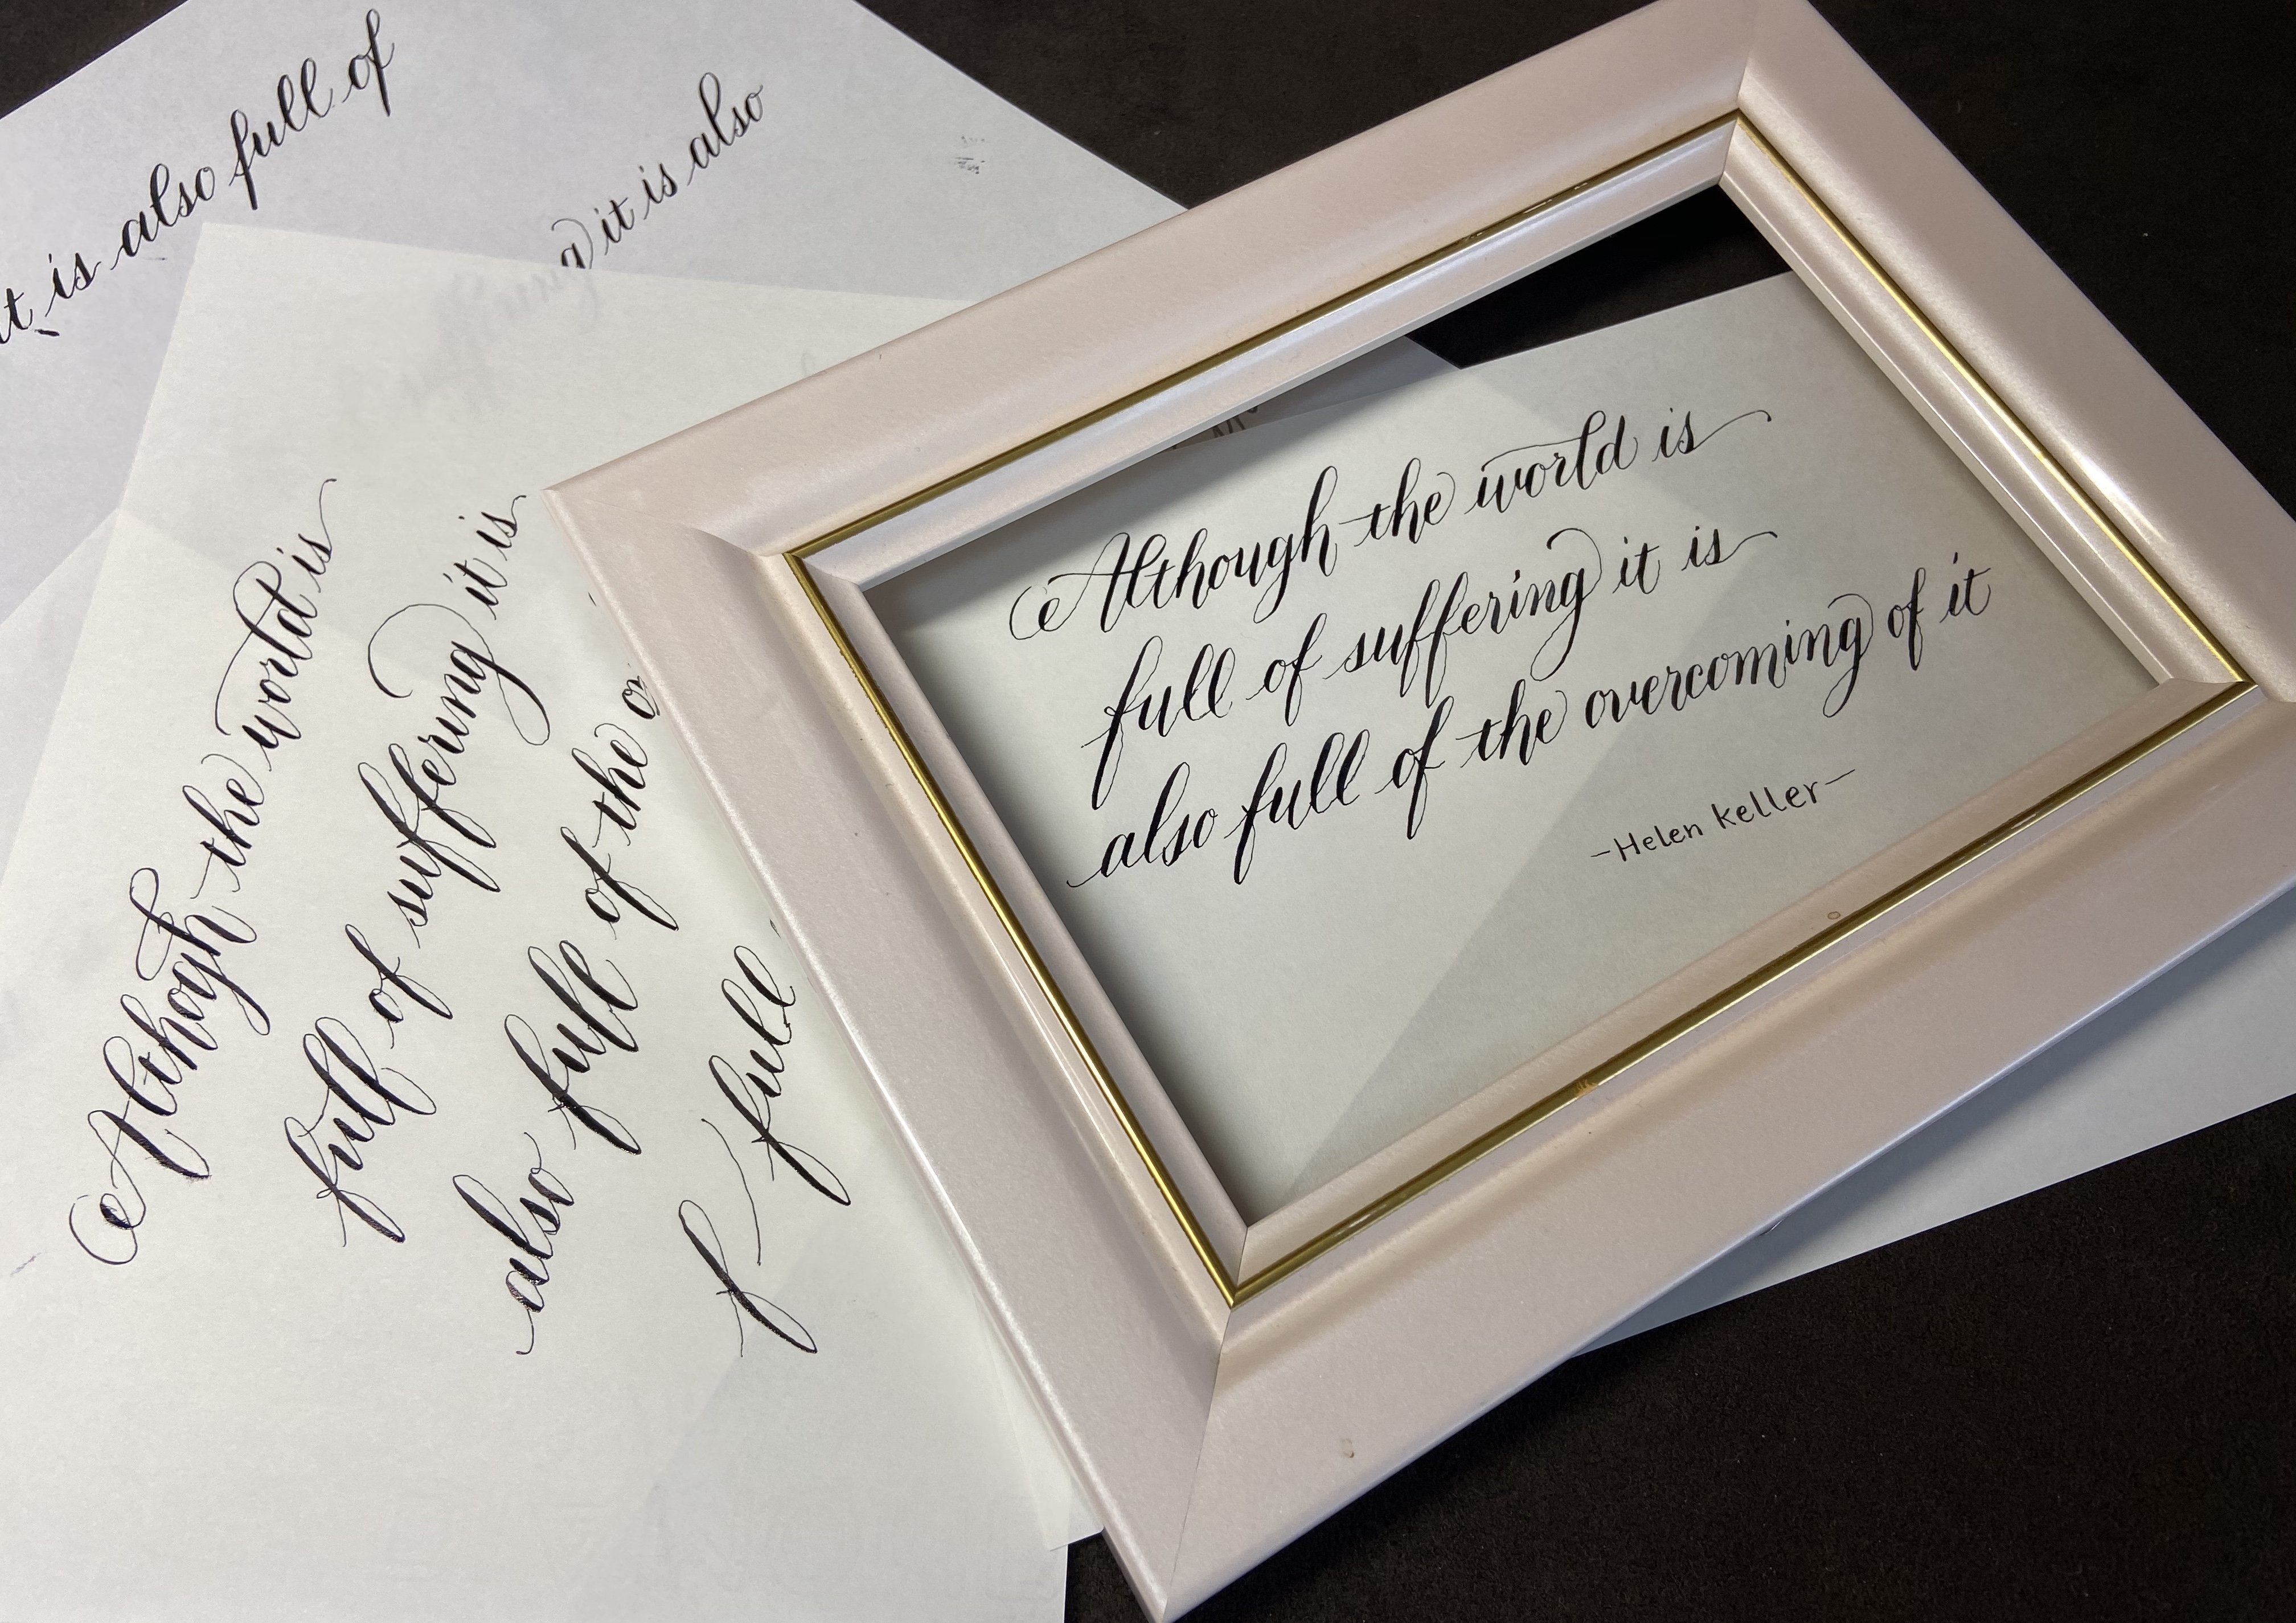 is also full of
it is also
Although the world is
full of suffering it is
also full of the
f full
Although the world is
full of suffering it is
also full of the overcoming of it
-Helen Keller-